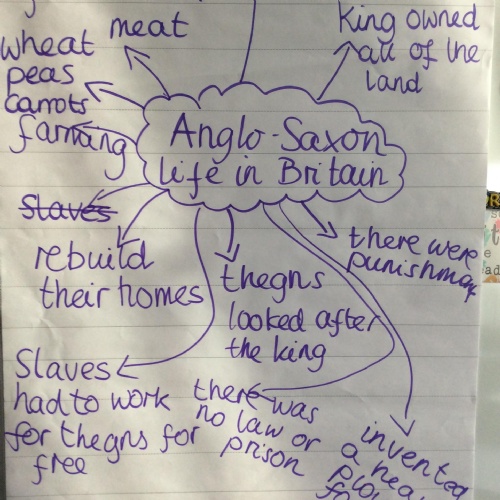 King owned
all of the
land
meat
wheat
peas
carrots
farming
Anglo-Saxon
life in Britain
slaves
rebuild
their homes
thegns
looked after
the king
there were
Slaves
had to work
for thegns for
free
there was
no law or
prison
invented
a